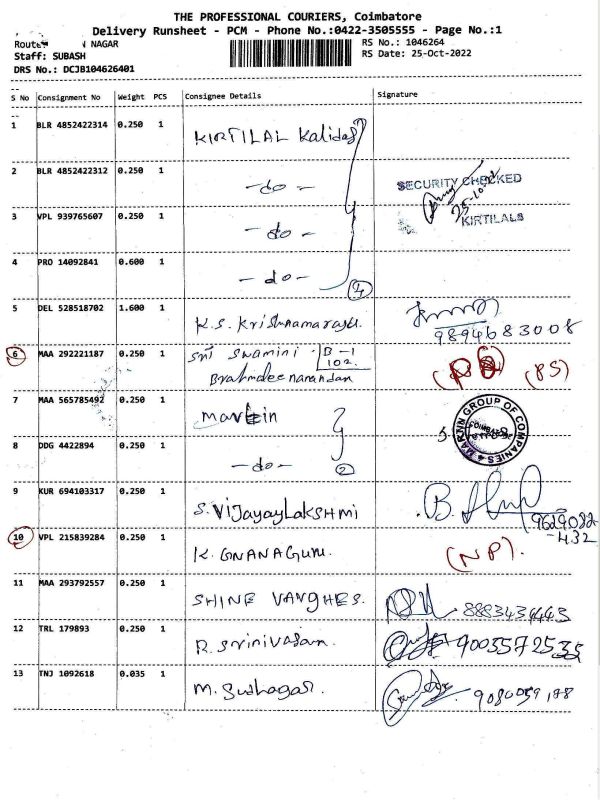 THE PROFESSIONAL COURIERS, Coimbatore
Delivery Runsheet - PCM - Phone No.:0422-3505555 - Page No.:1
Route: NAGAR
RS No.: 1046264
Staff: SUBASH
RS Date: 25-Oct-2022
DRS No.: DCJB104626401
S No Consignment No Weight PCS Consignee Details Signature
1 BLR 4852422314 0.250 1 KIRTILAL Kalidas
2 BLR 4852422312 0.250 1 -do- SECURITY CHECKED
KIRTILALS
3 VPL 939765607 0.250 1 -do-
4 PRO 14092841 0.600 1 -do- 4
5 DEL 528518702 1.600 1 K.S. Krishnamaraju. 9894683008
6 MAA 292221187 0.250 1 Sri Swamini B-1
102
(PS)
7 MAA 565785492 0.250 1 martin
MARTIN GROUP OF COMPANIES
COIMBATORE
8 DDG 4422894 0.250 1 -do- 2
9 KUR 694103317 0.250 1 S. VIJAYAYLAKSHMI
9629082
-432
10 VPL 215839284 0.250 1 K. GNANAGURU. (NP).
11 MAA 293792557 0.250 1 SHINE VARGHES.
12 TRL 179893 0.250 1 R. Srinivasan. 9003572535
13 TNJ 1092618 0.035 1 M. Sudhagar.